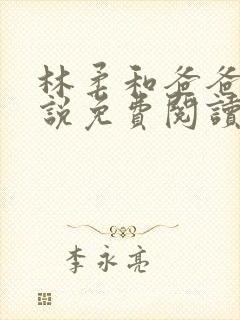 林柔和爸爸
説免費閱讀
李永亮